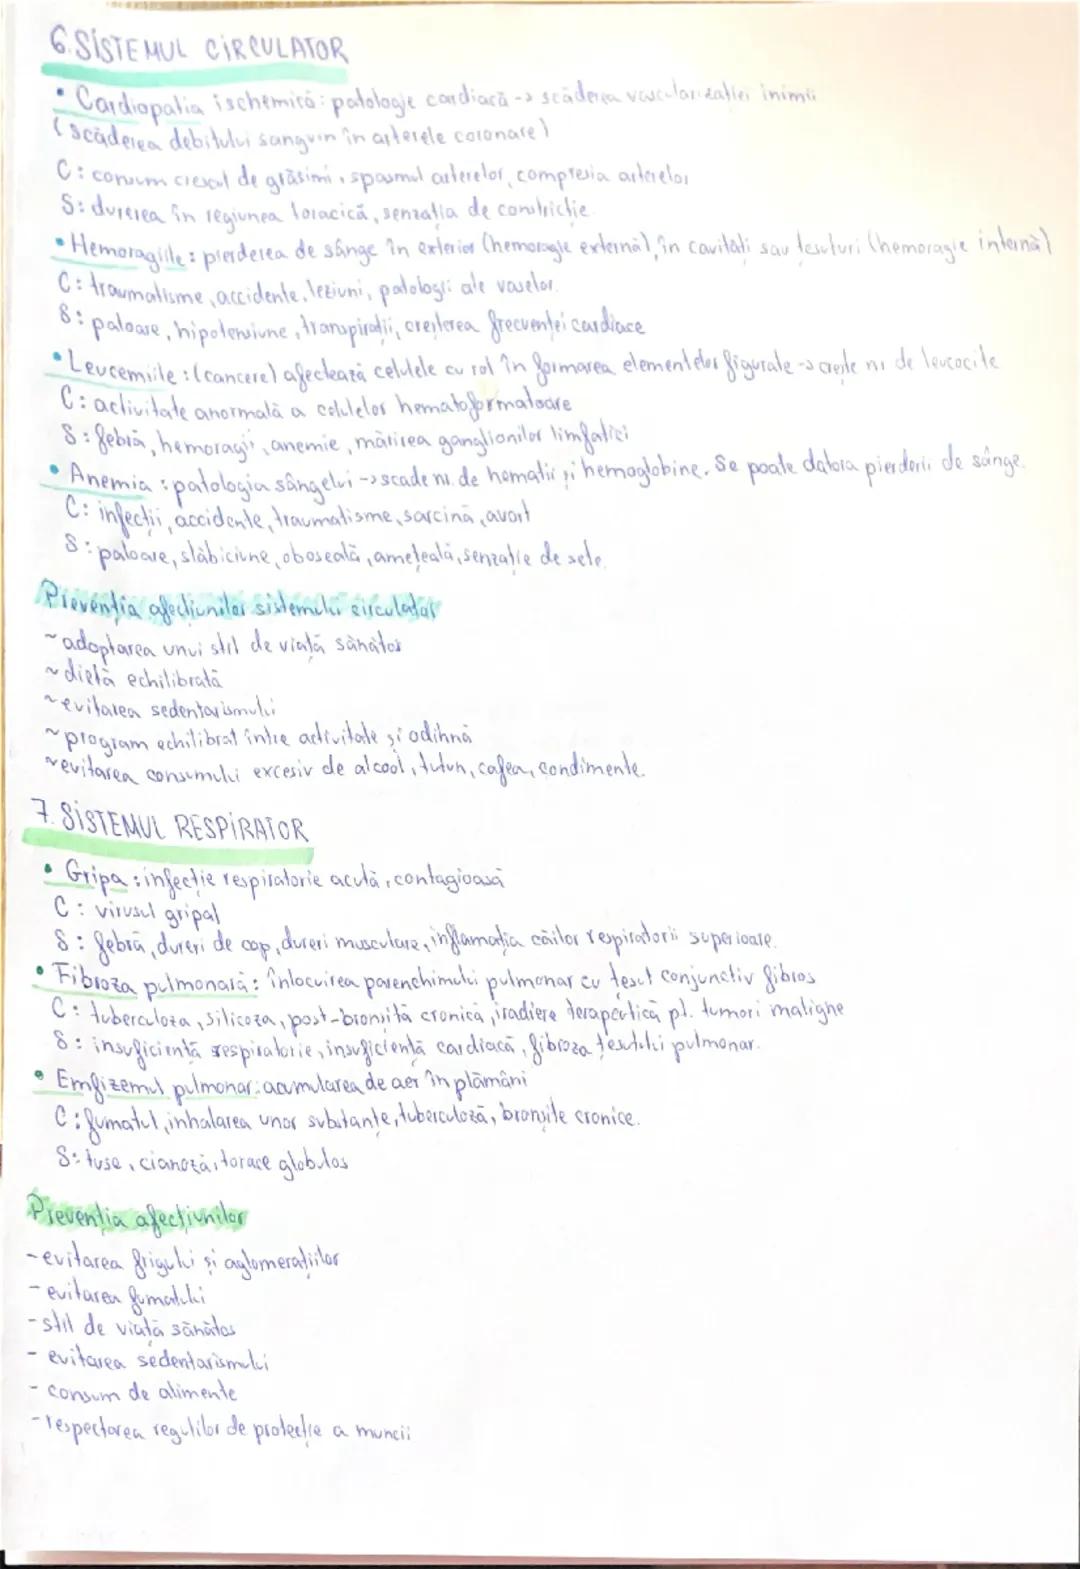 6. SISTEMUL CIRCULATOR
• Cardiopatia ischemică: patologie cardiacă -> scăderea vascularizației inimii
(scăderea debitului sanguin în arterele coronare)
C: consum crescut de grăsimi, spasmul arterelor, compresia arterelor
S: durerea în regiunea toracică, senzația de constricție.
• Hemoragiile: pierderea de sânge în exterior (hemoragie externă), în cavități sau țesuturi (hemoragie internă)
C: traumatisme, accidente, leziuni, patologii ale vaselor.
S: paloare, hipotensiune, transpirații, creșterea frecvenței cardiace
• Leucemiile: (cancere) afectează celulele cu rol în formarea elementelor figurate -> crește nr de leucocite
C: activitate anormală a celulelor hematoformatoare
S: febră, hemoragii, anemie, mărirea ganglionilor limfatici
• Anemia: patologia sângelui -> scade nr. de hematii și hemoglobine. Se poate datora pierderii de sânge.
C: infecții, accidente, traumatisme, sarcină, avort
S: paloare, slăbiciune, oboseală, amețeală, senzație de sete.
Prevenția afecțiunilor sistemului circulator
~adoptarea unui stil de viață sănătos
~dietă echilibrată
~evitarea sedentarismului
~program echilibrat între activitate și odihnă
~evitarea consumului excesiv de alcool, tutun, cafea, condimente.
7. SISTEMUL RESPIRATOR
• Gripa: infecție respiratorie acută, contagioasă
C: virusul gripal
S: febră, dureri de cap, dureri musculare, inflamația căilor respiratorii superioare.
• Fibroza pulmonară: înlocuirea parenchimului pulmonar cu țesut conjunctiv fibros
C: tuberculoza, silicoza, post-bronșită cronică, iradiere terapeutică pt. tumori maligne
S: insuficiență respiratorie, insuficiență cardiacă, fibroza țesutului pulmonar.
• Emfizemul pulmonar: acumularea de aer în plămâni
C: fumatul, inhalarea unor substanțe, tuberculoză, bronșite cronice.
S: tuse, cianoză, torace globulos
Prevenția afecțiunilor
-evitarea frigului și aglomerațiilor
- evitarea fumatului
-stil de viață sănătos
- evitarea sedentarismului
- consum de alimente
-respectarea regulilor de protecție a muncii